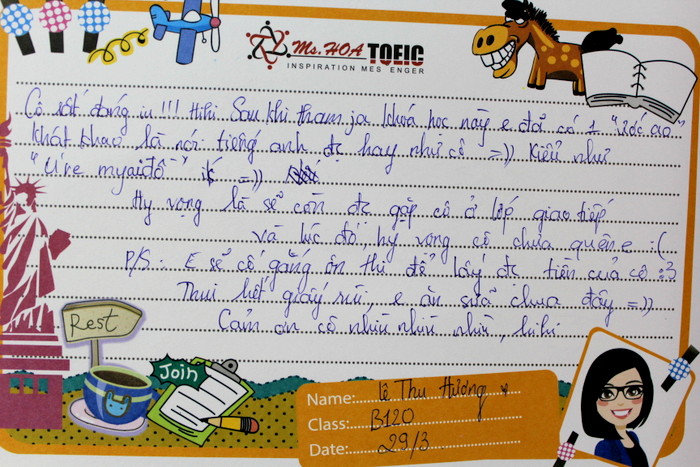 Ms. HOA TOEIC
INSPIRATION MES ENGER
Cô rất đáng iu !!! Hihi Sau khi tham ja khoá học này e đã có 1 "ước ao"
khát khao là nói tiếng anh đc hay như cô =)) Kiểu như
"U're my aiđồ" ý =))
Hy vọng là sẽ còn đc gặp cô ở lớp giao tiếp
và lúc đó, hy vọng cô chưa quên e :(
P/S : E sẽ cố gắng ôn thi để lấy đc tiền của cô :3
Thui hết giấy rùi, e ăn sữa chua đây =))
Cảm ơn cô nhìu nhìu nhìu, hihi
Rest
Join
Name: Lê Thu Hương
Class: B120
Date: 29/3